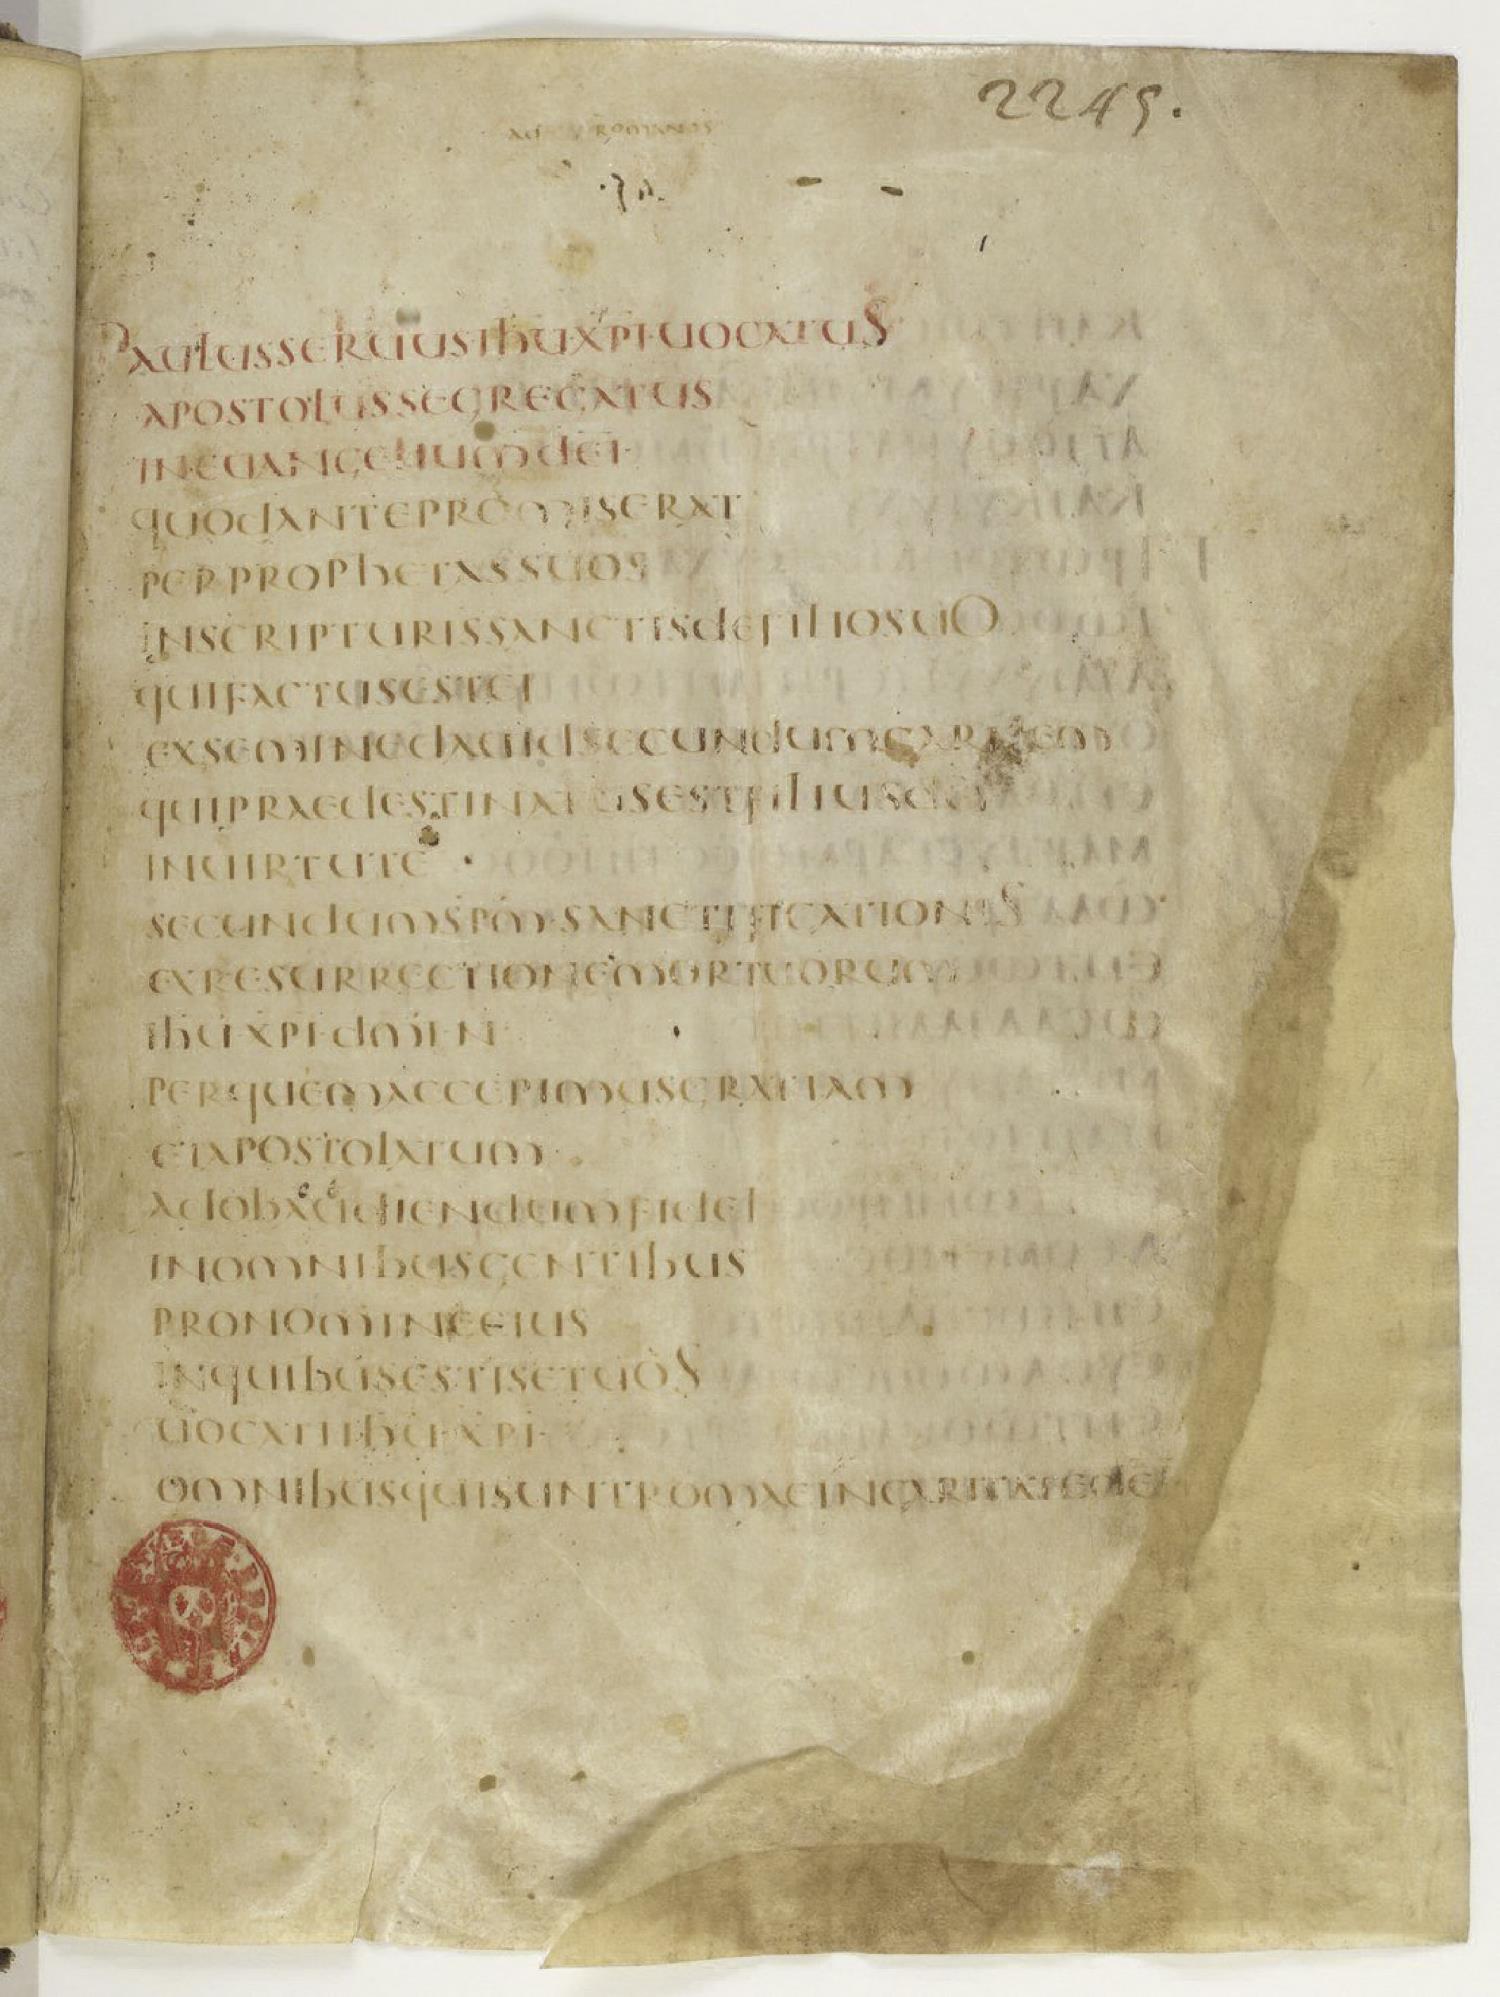 2245.
ad romanos
paulusseruusihuxpiuocatus
apostolussegregatus
ineuangeliumdei
quodantepromiserat
perprophetassuos
inscripturissanctisdefiliosuo
quifactusestei
exseminedauidsecundumcarnem
quipraedestinatusestfiliusdei
inuirtute
secundumspmsanctificationis
exresurrectionemortuorum
ihuxpidmin
perquemaccepimusgratiam
etapostolatum
adobaudiendumfidei
inomnibusgentibus
pronomineeius
inquibusestisetuos
uocatiihuxpi
omnibusquisuntromaeincaritatedei